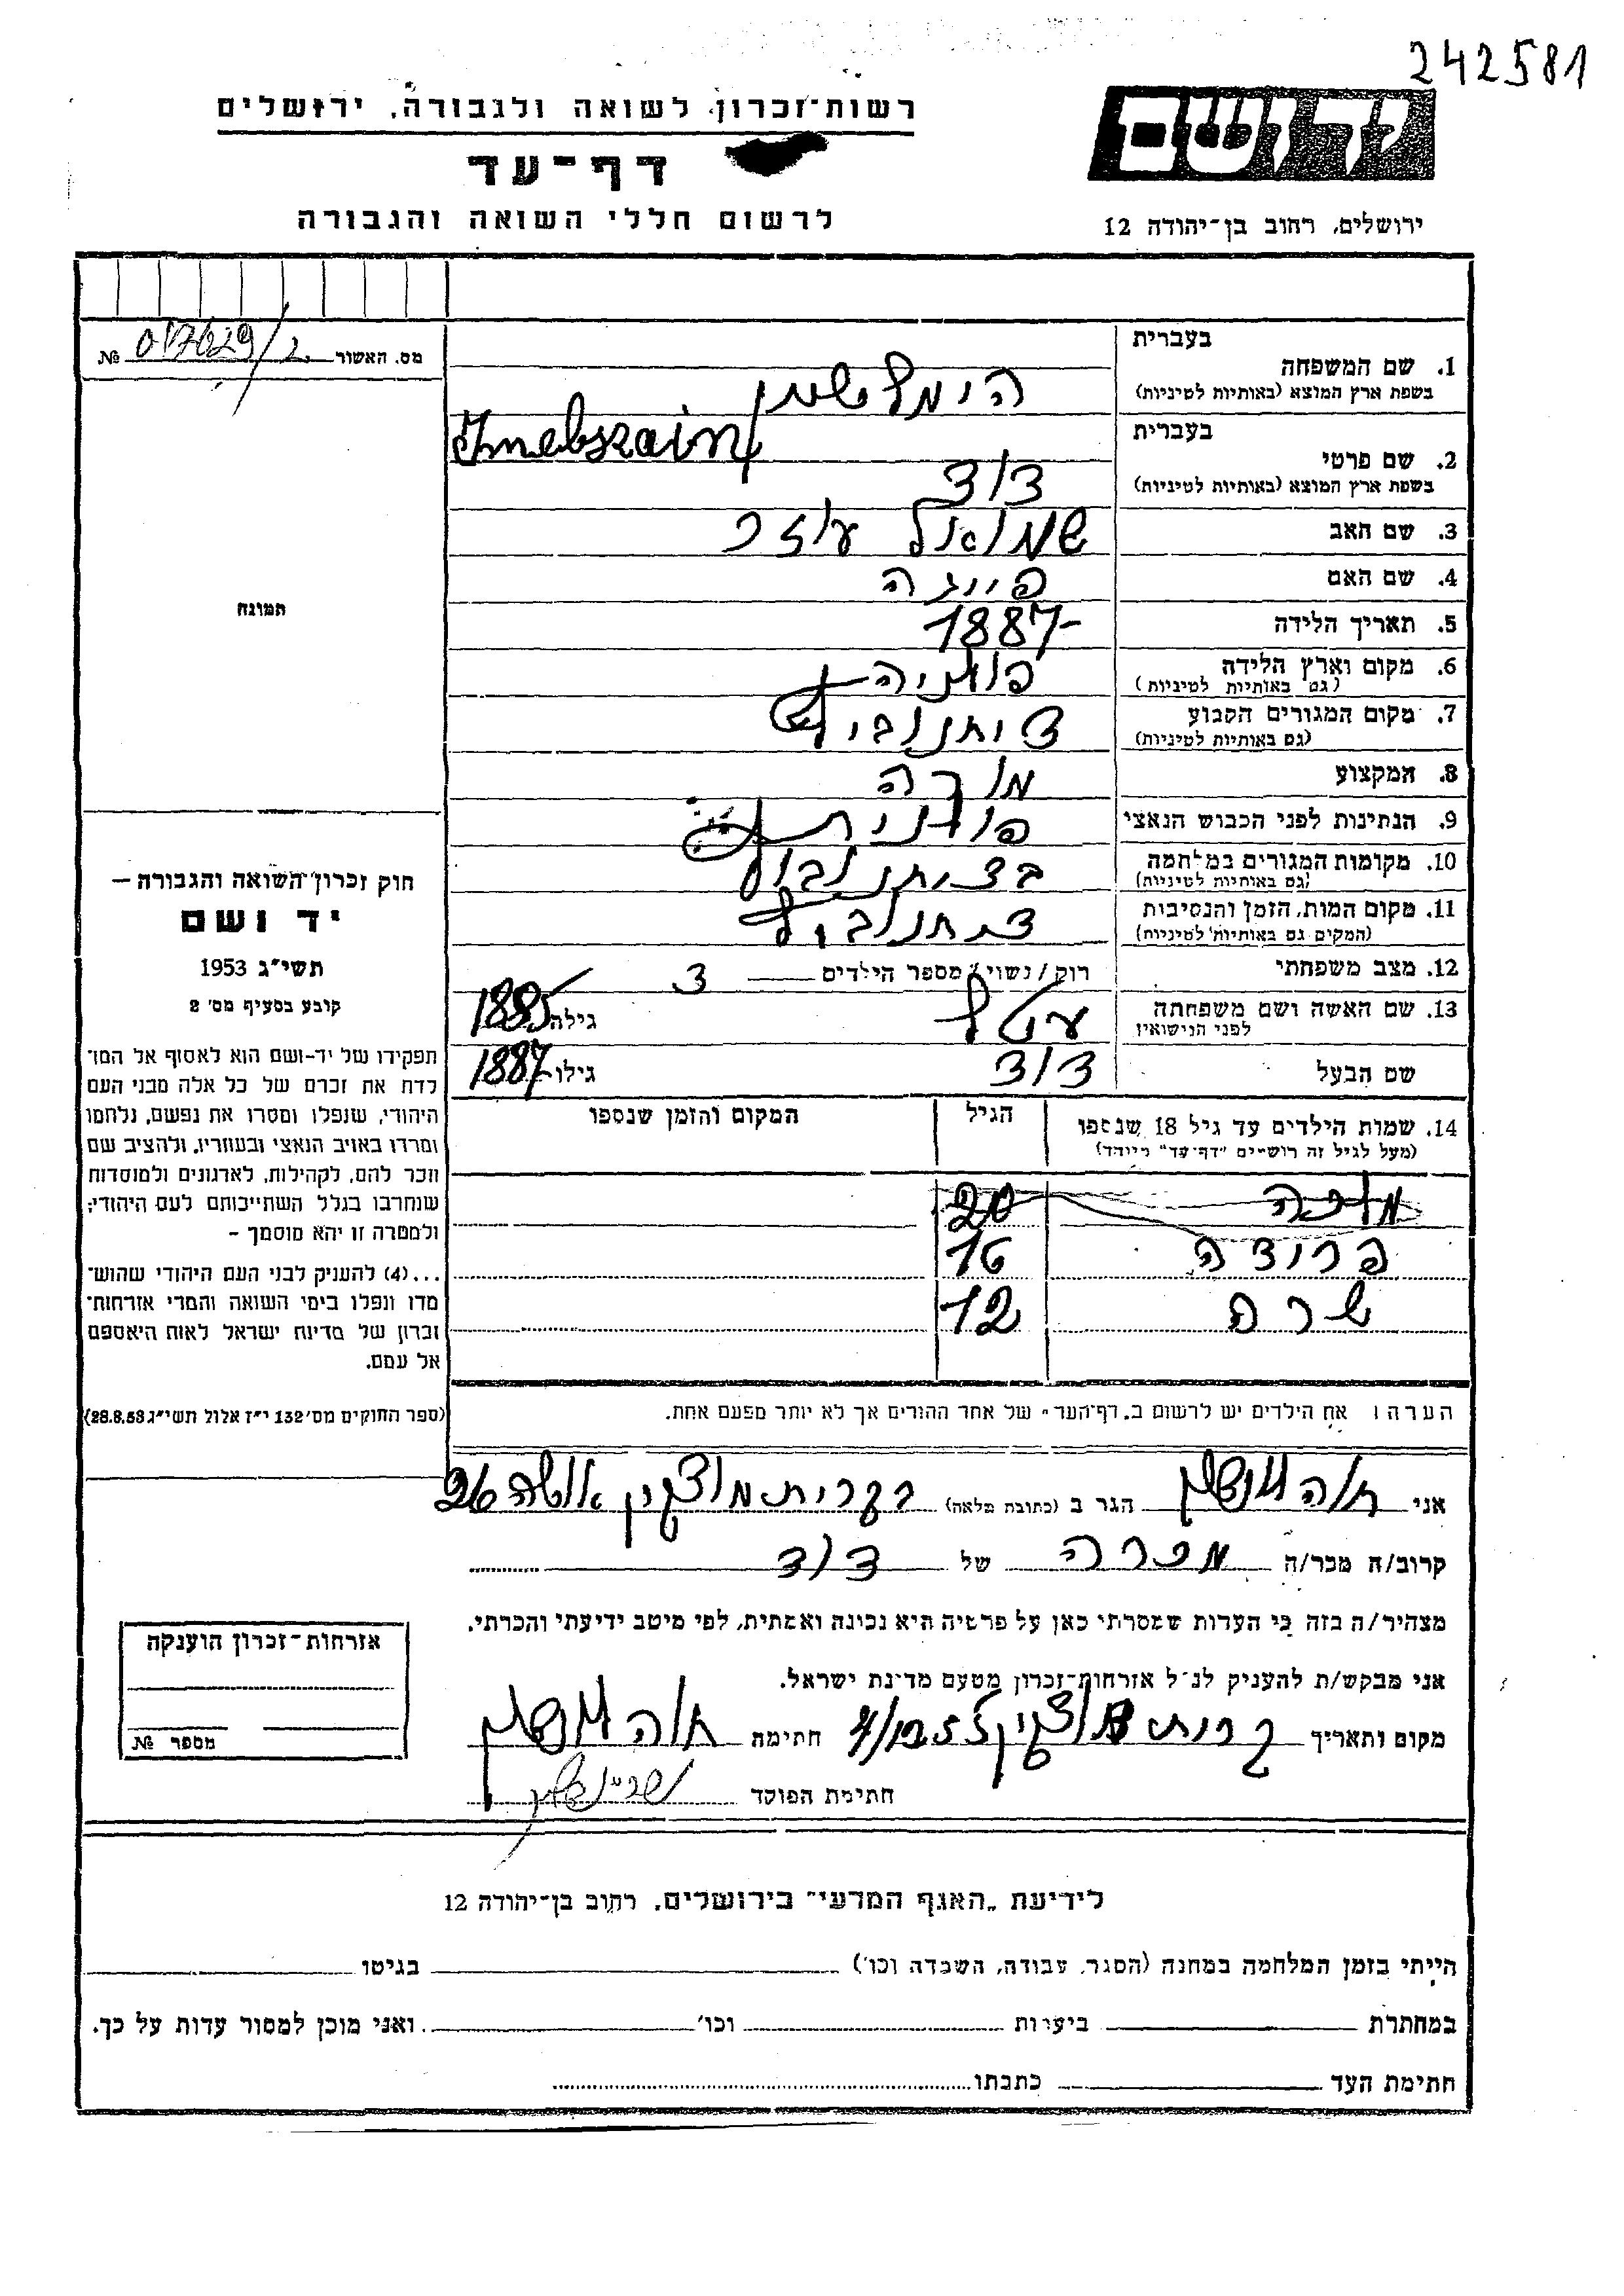 242581
רשות־זכרון לשואה ולגבורה, ירושלים
דף־עד
לרשום חללי השואה והגבורה
ידושם
ירושלים, רחוב בן־יהודה 12
מס. האשור № 017629/2
1. שם המשפחה בעברית
בשפת ארץ המוצא (באותיות לטיניות)
הימלשטין
Imelszain
2. שם פרטי בעברית
בשפת ארץ המוצא (באותיות לטיניות)
דוד
3. שם האב שמואל עוזר
4. שם האם פייגה
5. תאריך הלידה 1887-
6. מקום וארץ הלידה
(גם באותיות לטיניות)
פולניה
7. מקום המגורים הקבוע
(גם באותיות לטיניות)
8. המקצוע מורה
9. הנתינות לפני הכבוש הנאצי פולנית
10. מקומות המגורים במלחמה
(גם באותיות לטיניות)
11. מקום המות, הזמן והנסיבות
(המקום גם באותיות לטיניות)
12. מצב משפחתי רוק/נשוי/מספר הילדים 3
13. שם האשה ושם משפחתה
לפני הנישואין
גילה 1885
שם הבעל דוד גילו 1887
14. שמות הילדים עד גיל 18 שנספו הגיל המקום והזמן שנספו
(מעל לגיל זה רושמים "דף־עד" מיוחד)
מלכה 20
פרודה 16
שרה 12
הערה: את הילדים יש לרשום ב„דף־העד״ של אחד ההורים אך לא יותר מפעם אחת.
תמונה
חוק זכרון השואה והגבורה —
יד ושם
תשי״ג 1953
קובע בסעיף מס׳ 2
תפקידו של יד-ושם הוא לאסוף אל המו־
לדת את זכרם של כל אלה מבני העם
היהודי, שנפלו ומסרו את נפשם, נלחמו
ומרדו באויב הנאצי ובעוזריו, ולהציב שם
וזכר להם, לקהילות, לארגונים ולמוסדות
שנחרבו בגלל השתייכותם לעם היהודי;
ולמטרה זו יהא מוסמך –
...(4) להעניק לבני העם היהודי שהוש־
מדו ונפלו בימי השואה והמרי אזרחות־
זכרון של מדינת ישראל לאות היאספם
אל עמם.
(ספר החוקים מס׳ 132 י״ז אלול תשי״ג 28.8.53)
אני חוה הגר ב (כתובת מלאה) בקרית מוצקין 26
קרוב/ה מכר/ה מכרה של דוד
מצהיר/ה בזה כי העדות שמסרתי כאן על פרטיה היא נכונה ואמתית, לפי מיטב ידיעתי והכרתי.
אני מבקש/ת להעניק לנ״ל אזרחות־זכרון מטעם מדינת ישראל.
מקום ותאריך קרית מוצקין 4/12 55 חתימה חוה
חתימת הפוקד
אזרחות־זכרון הוענקה
מספר №
לידיעת „האגף המדעי״ בירושלים, רחוב בן־יהודה 12
הייתי בזמן המלחמה במחנה (הסגר, עבודה, השמדה וכו׳) בגיטו
במחתרת ביערות וכו׳ ואני מוכן למסור עדות על כך.
חתימת העד כתבתו